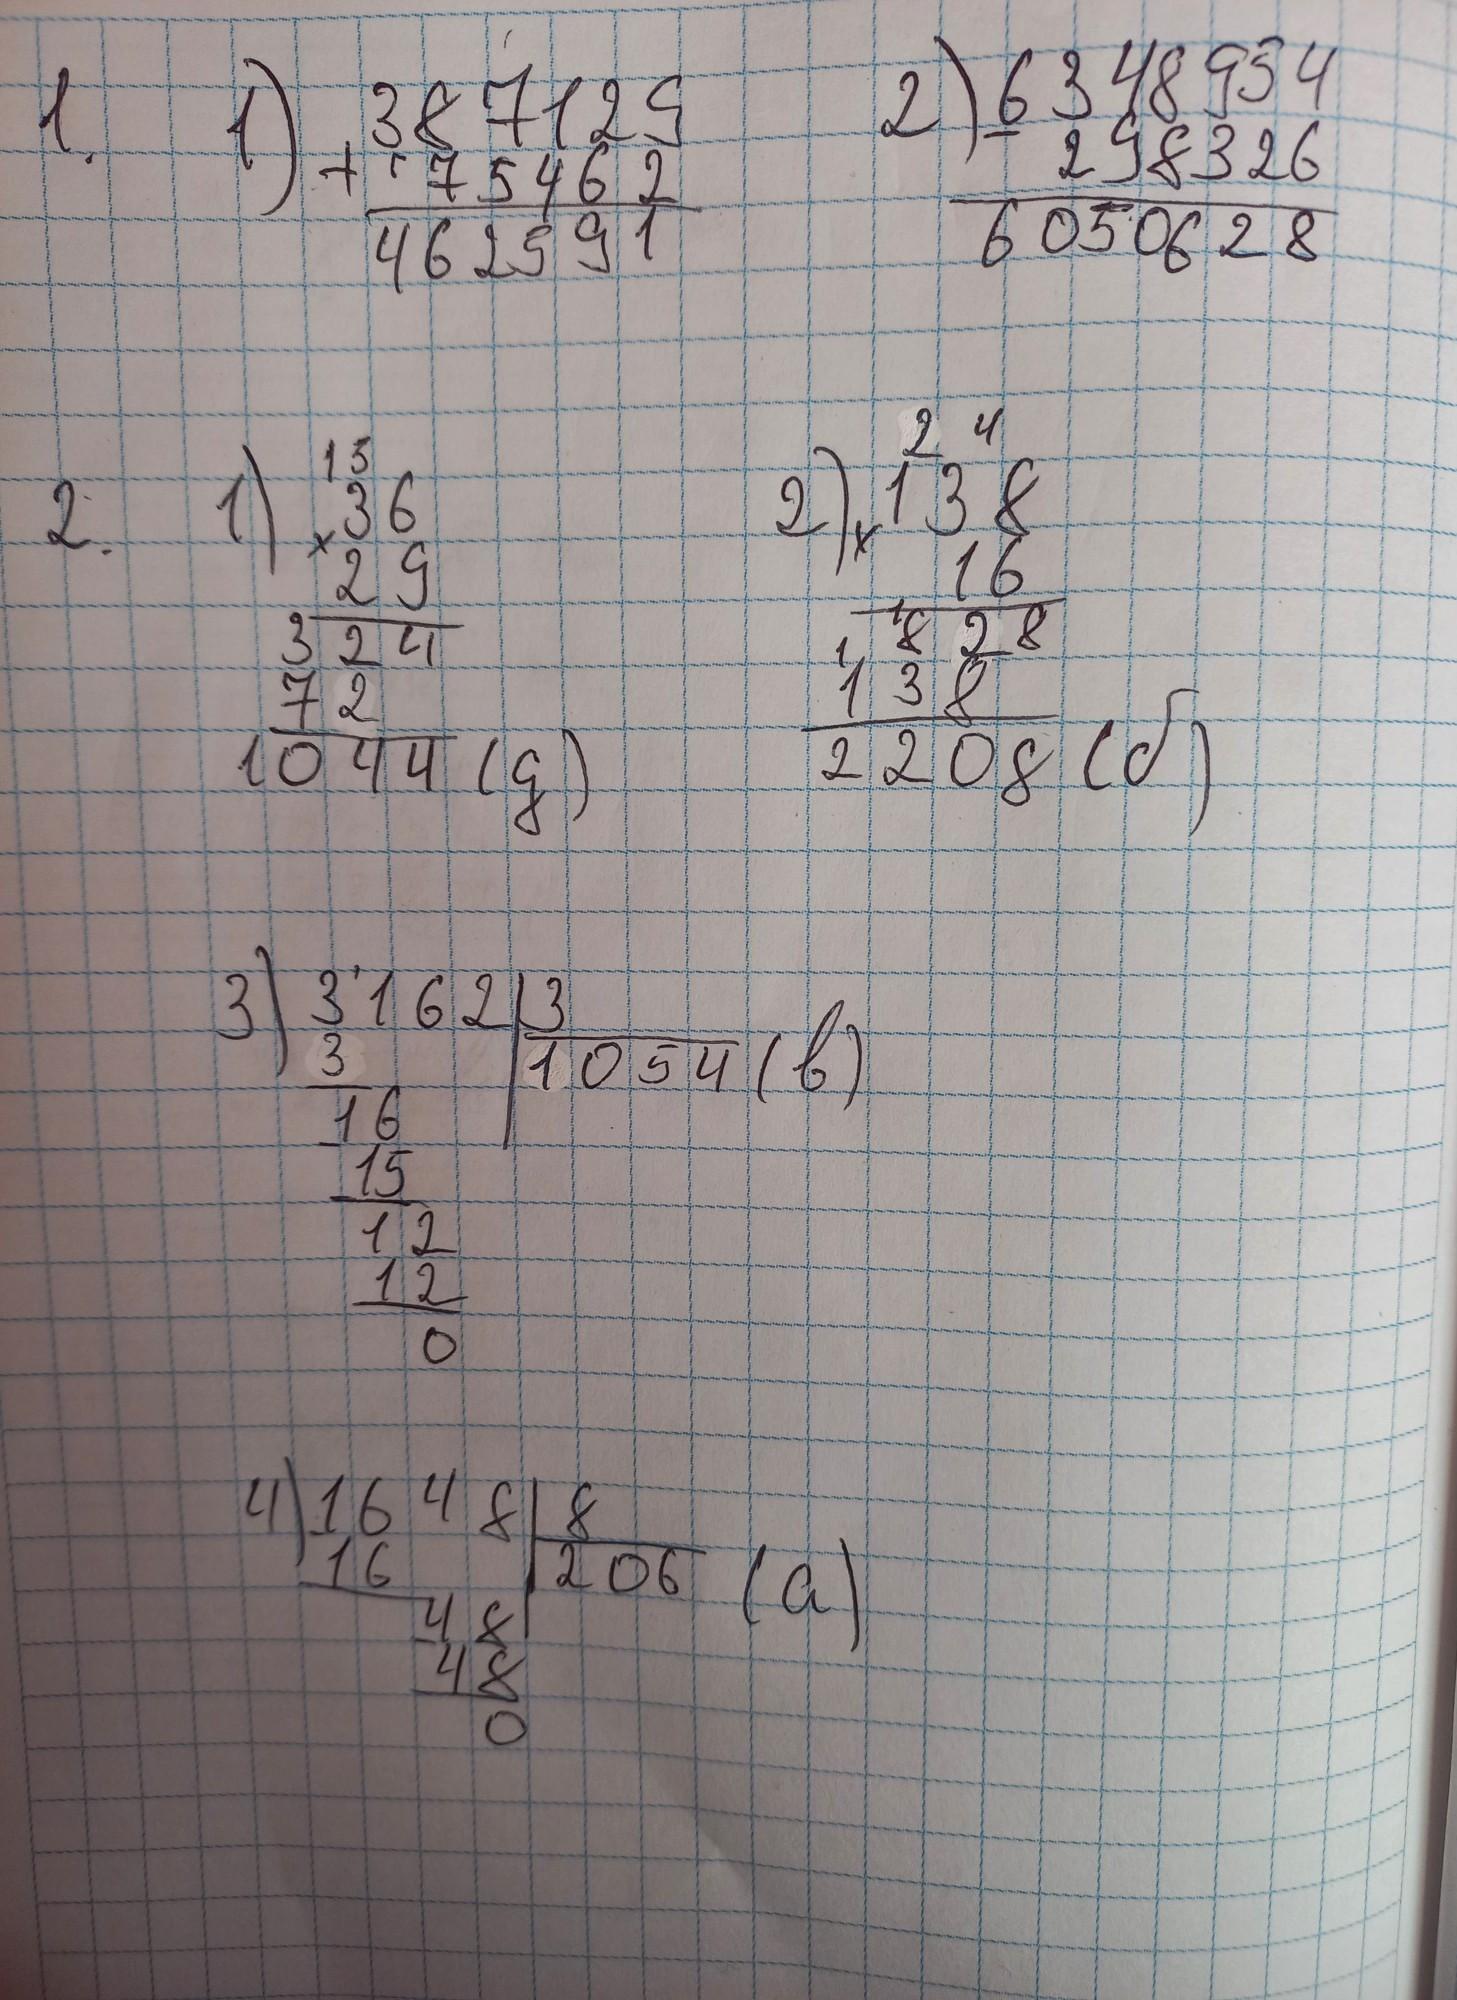 1. 1) 387129
+ 75462
462591
2) 6348954
- 298326
6050628
2. 1) 15
36
× 29
324
72
1044 (д)
2) 2 4
138
× 16
1828
1138
2208 (б)
3) 3162 | 3
3 1054 (в)
16
15
12
12
0
4) 1648 | 8
16 206 (а)
48
48
0